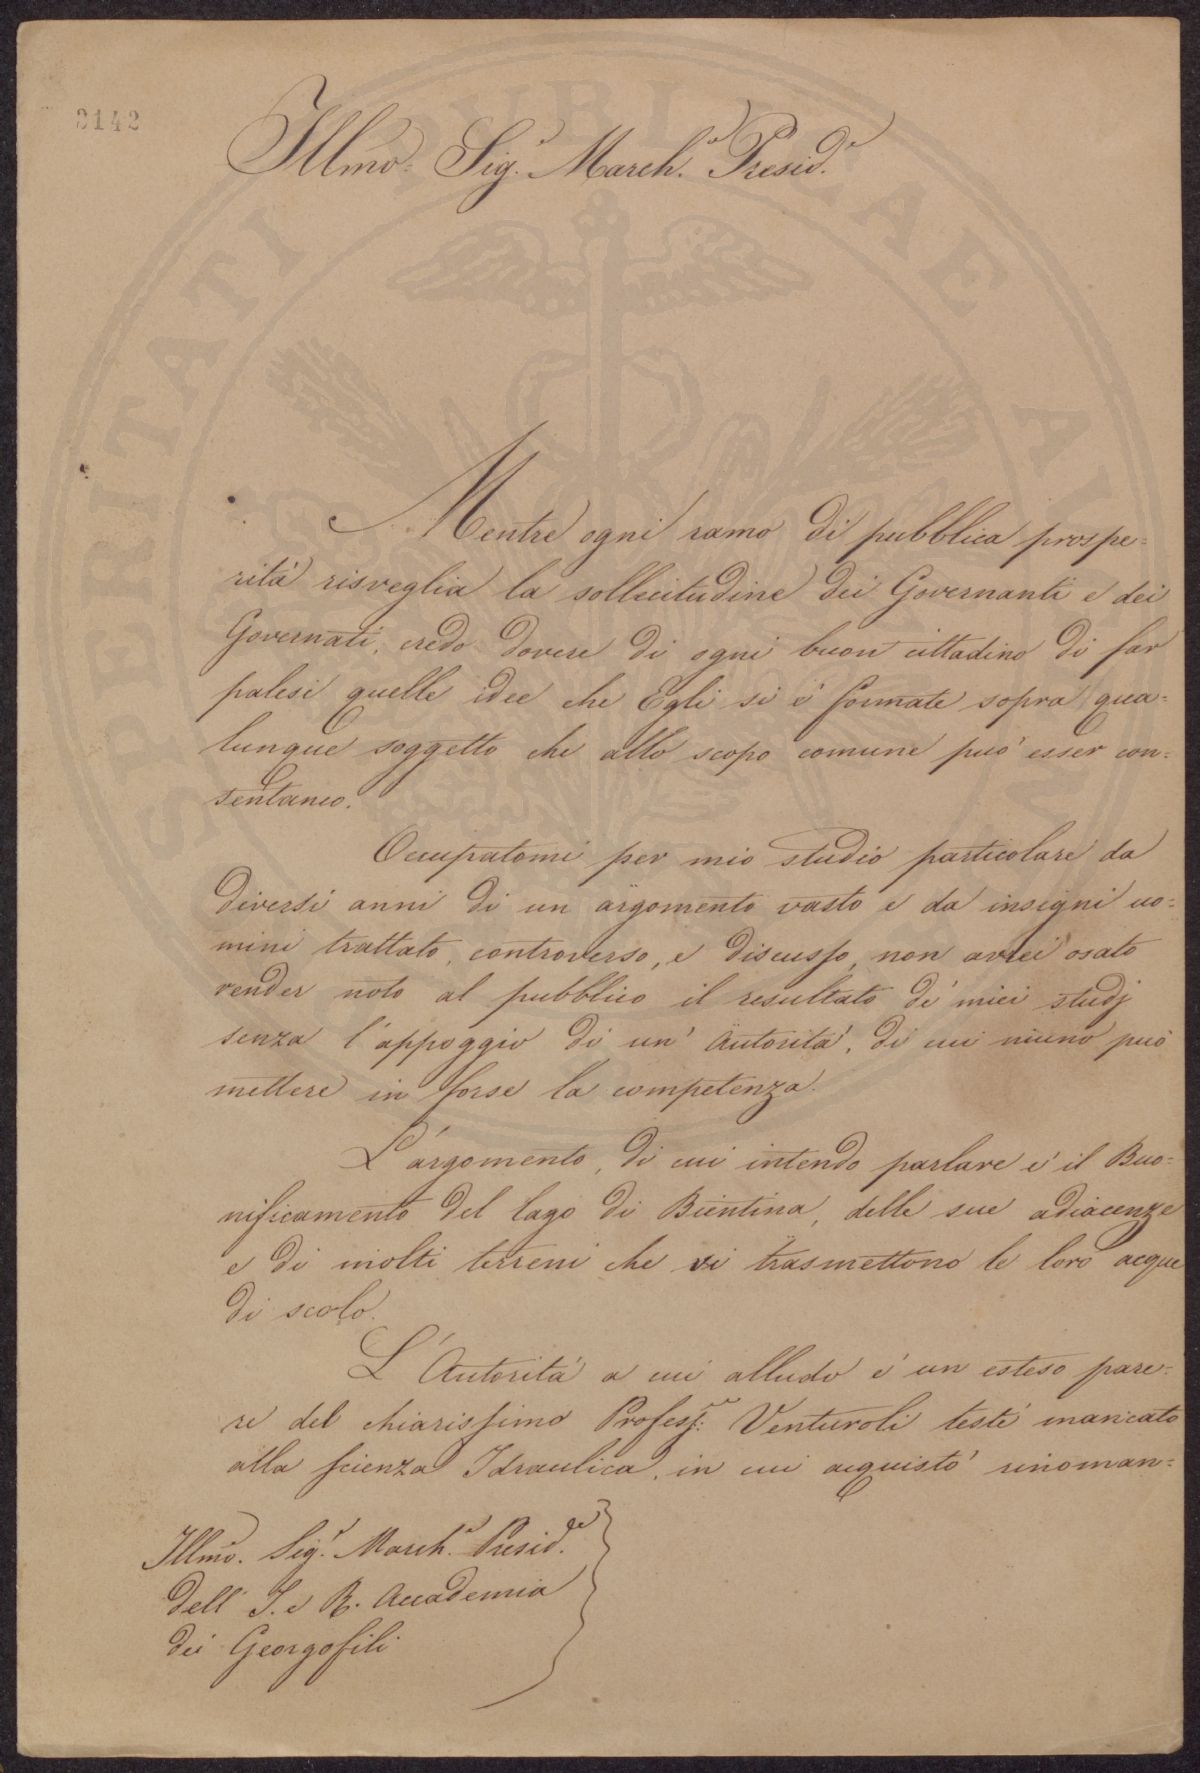 3142
Illmo. Sig.r March.e Presid.e
Mentre ogni ramo di pubblica prospe=
rità risveglia la sollecitudine dei Governanti e dei
Governati, credo dovere di ogni buon cittadino di far
palesi quelle idee che Egli si è formate sopra qua=
lunque soggetto che allo scopo comune può esser con=
sentaneo.
Occupatomi per mio studio particolare da
diversi anni di un argomento vasto e da insigni uo=
mini trattato, controverso, e discusso, non avrei osato
render noto al pubblico il resultato de' miei studj
senza l'appoggio di un' Autorità, di cui niuno può
mettere in forse la competenza.
L'argomento, di cui intendo parlare è il Buo=
nificamento del lago di Bientina, delle sue adiacenze
e di molti terreni che vi trasmettono le loro acque
di scolo.
L'Autorità a cui alludo è un esteso pare=
re del chiarissimo Profess.re Venturoli testè mancato
alla scienza Idraulica, in cui acquistò rinoman=
Illmo. Sig.r March.e Presid.te
dell' I. e R. Accademia
dei Georgofili